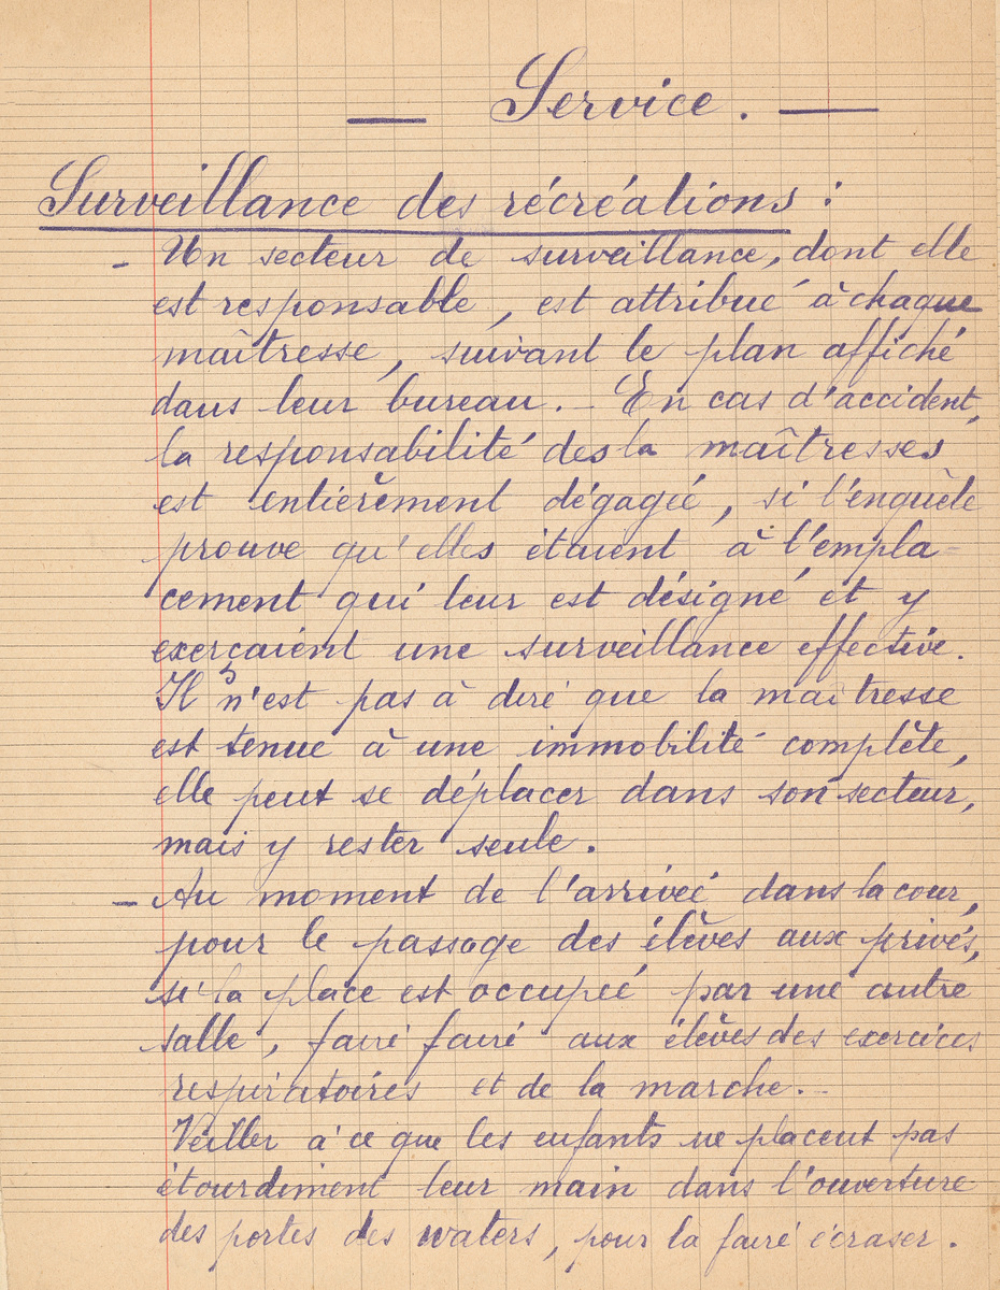 — Service. —
Surveillance des récréations :
- Un secteur de surveillance, dont elle
est responsable, est attribué à chaque
maîtresse, suivant le plan affiché
dans leur bureau. - En cas d'accident,
la responsabilité des la maîtresses
est entièrement dégagée, si l'enquête
prouve qu'elles étaient à l'empla-
cement qui leur est désigné et y
exerçaient une surveillance effective.
Il n'est pas à dire que la maîtresse
est tenue à une immobilité complète,
elle peut se déplacer dans son secteur,
mais y rester seule.
- Au moment de l'arrivée dans la cour,
pour le passage des élèves aux privés,
si la place est occupée par une autre
salle, faire faire aux élèves des exercices
respiratoires et de la marche. -
Veiller à ce que les enfants ne placent pas
étourdiment leur main dans l'ouverture
des portes des waters, pour la faire écraser.